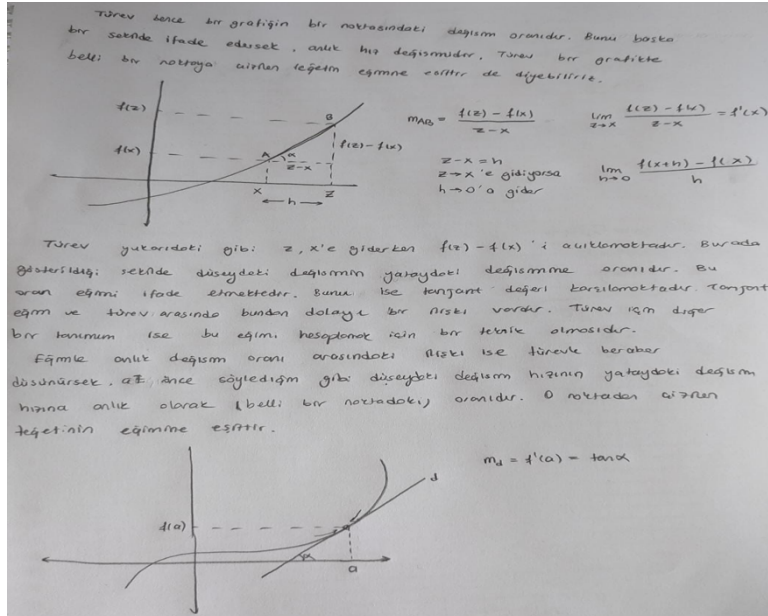 Türev bence bir grafiğin bir noktasındaki değişim oranıdır. Bunu başka
bir şekilde ifade edersek, anlık hız değişimidir. Türev bir grafikte
belli bir noktaya çizilen teğetin eğimine eşittir de diyebiliriz.
f(z)
f(x)
A
B
α
z-x
f(z)-f(x)
x
z
h
m_AB = f(z)-f(x) / z-x
lim z→x f(z)-f(x) / z-x = f'(x)
z-x=h
z→x'e gidiyorsa
h→0'a gider
lim h→0 f(x+h)-f(x) / h
Türev yukarıdaki gibi z, x'e giderken f(z)-f(x)'i açıklamaktadır. Burada
gösterildiği şekilde düşeydeki değişimin yataydaki değişimine oranıdır. Bu
oran eğimi ifade etmektedir. Bunu ise tanjant değeri karşılamaktadır. Tanjant
eğim ve türev arasında bundan dolayı bir ilişki vardır. Türev için diğer
bir tanımım ise bu eğimi hesaplamak için bir teknik olmasıdır.
Eğimle anlık değişim oranı arasındaki ilişki ise türevle beraber
düşünürsek, az önce söylediğim gibi düşeydeki değişim hızının yataydaki değişim
hızına anlık olarak (belli bir noktadaki) oranıdır. O noktadan çizilen
teğetinin eğimine eşittir.
m_d = f'(a) = tanα
d
f(a)
α
a